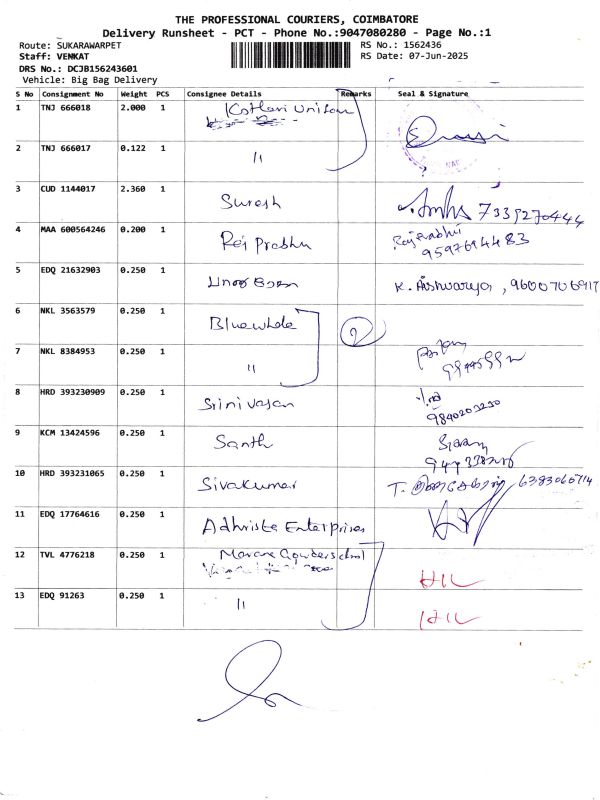 THE PROFESSIONAL COURIERS, COIMBATORE
Delivery Runsheet - PCT - Phone No.:9047080280 - Page No.:1
Route: SUKARAWARPET
RS No.: 1562436
Staff: VENKAT
RS Date: 07-Jun-2025
DRS No.: DCJB156243601
Vehicle: Big Bag Delivery
S No Consignment No Weight PCS Consignee Details Remarks Seal & Signature
1 TNJ 666018 2.000 1 Kothari
2 TNJ 666017 0.122 1 "
3 CUD 1144017 2.360 1 Suresh 7339270444
4 MAA 600564246 0.200 1 Raj Prabhu Raj Prabhu
9597694483
5 EDQ 21632903 0.250 1 K. Aishwarya, 9600706917
6 NKL 3563579 0.250 1 Bluewhale 2
7 NKL 8384953 0.250 1 "
8 HRD 393230909 0.250 1 Srinivasan
9840203230
9 KCM 13424596 0.250 1 Santh
10 HRD 393231065 0.250 1 Sivakumar T. 6383066714
11 EDQ 17764616 0.250 1 Adhrista Enterprises
12 TVL 4776218 0.250 1
13 EDQ 91263 0.250 1 "